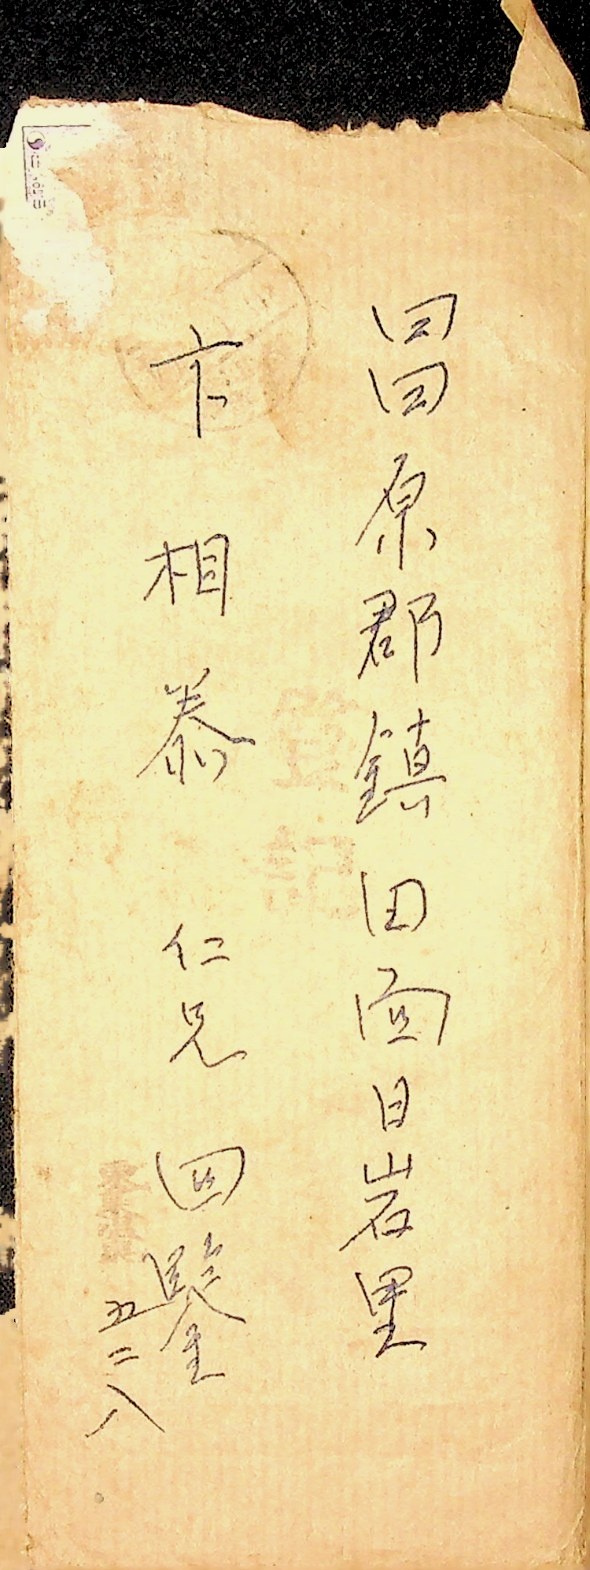 昌原郡鎮田面日岩里
卞相泰 仁兄 回鑒
五二八